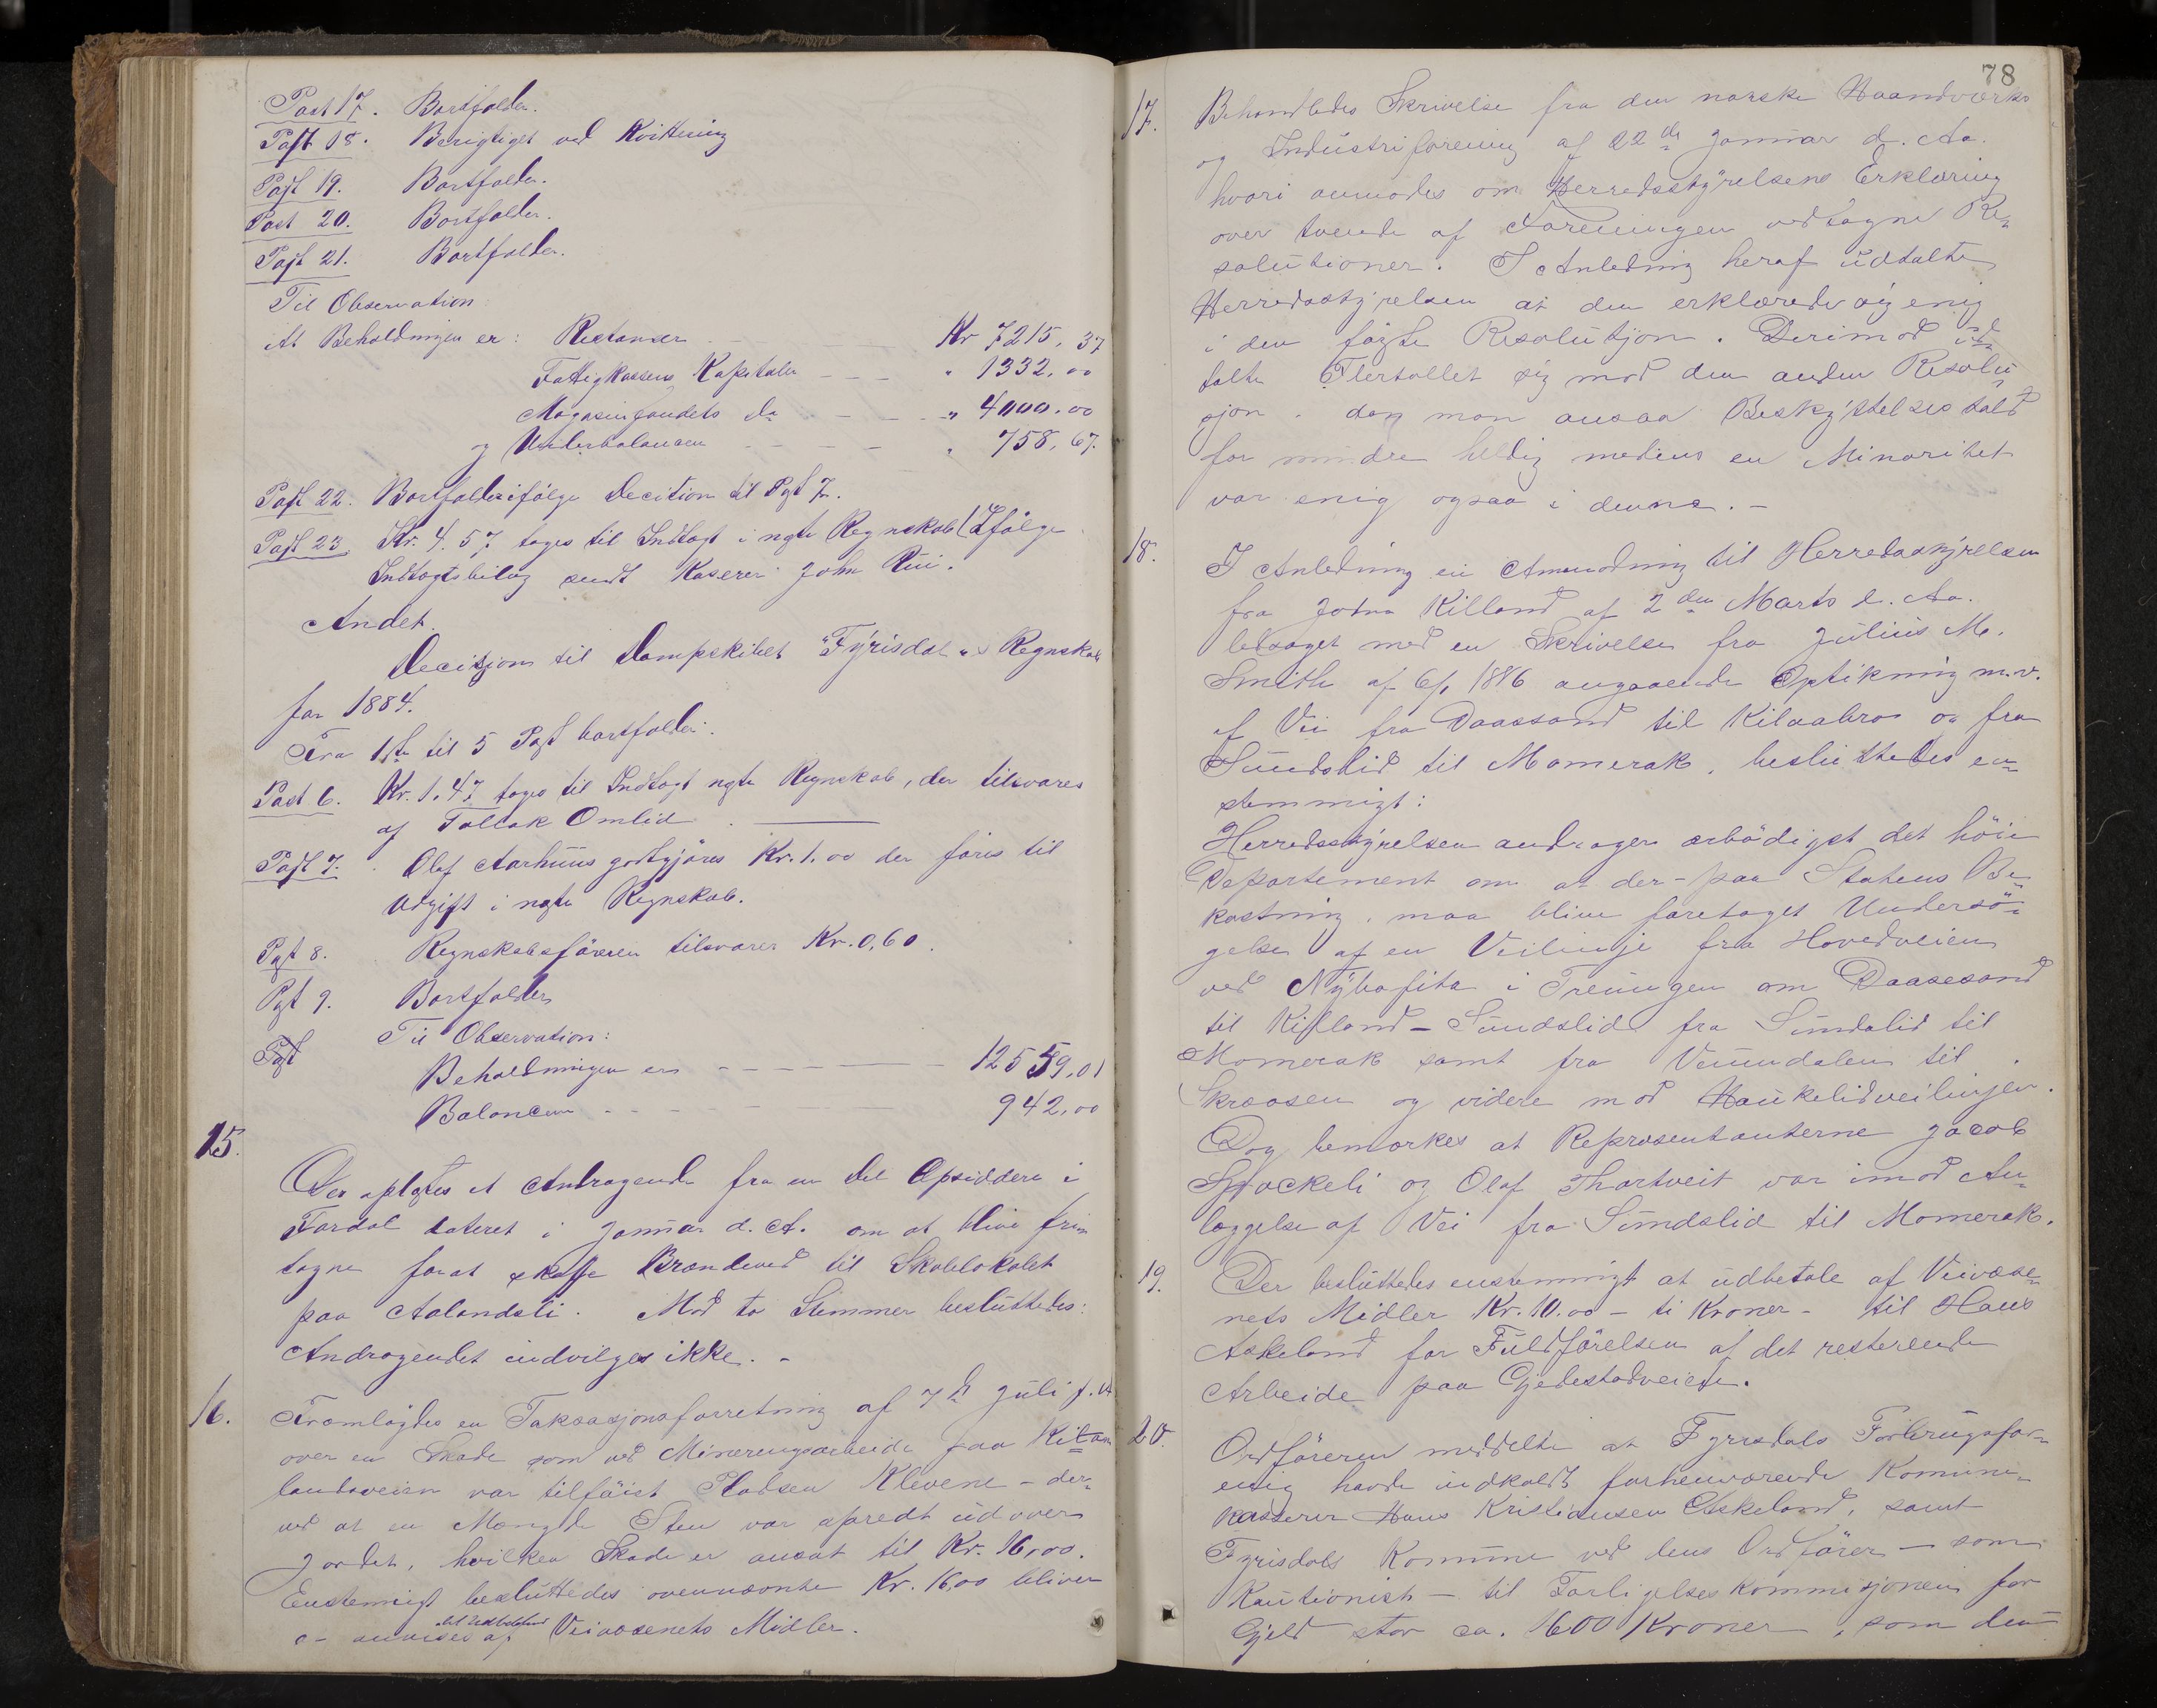 Post 17. Bortfalder.
Post 18. Berigtiget ved Kvittering
Post 19. Bortfalder.
Post 20. Bortfalder.
Post 21. Bortfalder.
Til Observation
At Beholdningen er: Restanser Kr 7215,37
Fattigkassens Kapitaler " 1332,00
Magasinfondets do " 4000,00
og Underbalancen " 758,67.
Post 22. Bortfalder ifølge Decition til Post 7.
Post 23. Kr. 4.57 tages til Indtægt i næste Regnskab (Ifølge
Indtægtsbilag sendt Kaserer John Rui.
Andet.
Decisjon til Dampskibet "Fyrisdal"s Regnskab
for 1884.
Fra 1ste til 5 Post bortfalder.
Post 6. Kr. 1,47 tages til Indtægt næste Regnskab, der tilsvares
af Tallak Omlid.
Post 7. Olaf Aarhuus godtgjøres Kr. 1,00 der føres til
Udgift i næste Regnskab.
Post 8. Regnskabsføreren tilsvarer Kr. 0,60.
Post 9. Bortfalder
Post Til Observation:
Beholdningen er 12559,01
Balancen 942,00
15.
Der oplæstes et Andragende fra en Del Opsiddere i
Fardal dateret i Januar d. A. om at blive fri-
tagne forat skaffe Brændeved til Skolelokalet
paa Aalandsli. Mod to Stemmer besluttedes:
Andragendet indvilges ikke. -
16. Fremlagdes en Taksasjonsforretning af 7de Juli f. A
over en Skade som ved Mineringsarbeide paa Kilan
landsveien var tilføiet Pladsen Klevene - der-
ved at en Mængde Sten var spredt udover
Jordet, hvilken Skade er ansat til Kr. 16,00.
Enstemmigt besluttedes ovennævnte Kr. 16,00 bliver
at anvises til Udbetaling af Veivæsenets Midler.
78
17. Behandledes Skrivelse fra den norske Haandværks
og Industriforening af 22de Januar d. Aa.
hvori anmodes om Herredsstyrelsens Erklæring
over tvende af Foreningen vedtagne Re-
solutioner. I Anledning heraf udtalte
Herredsstyrelsen at den erklærede sig enig
i den første Resolutjon. Derimod ud-
talte Flertallet sig mod den anden Resolu-
sjon, da man ansaa Beskyttelsestold
for mindre heldig medens en Minoritet
var enig ogsaa i denne. -
18. I Anledning en Anmodning til Herredsstyrelsen
fra Killand af 2den Marts d. Aa.
ledsaget med en Skrivelse fra Julius M.
Smith af 6/1 1886 angaaende Optikning m.v.
af Vei fra Daassand til Kilaabro og fra
Sundslid til Momerak, besluttedes en-
stemmigt:
Herredsstyrelsen andrager ærbødigst det høie
Departement om at der - paa Statens Be-
kostning, maa blive foretaget Undersø-
gelse af en Veilinje fra Hovedveien
ved Nybofita i Treungen om Daasesand
til Killand - Sundslid fra Sundslid til
Momerak samt fra Veumdalen til
Skraasen og videre mod Haukelidveilinjen.
Dog bemærkes at Repræsentanterne Jacob
Spockeli og Olaf Thortveit var imod An-
læggelse af Vei fra Sundslid til Momerak.
19. Der besluttedes enstemmigt at udbetale af Veivæse-
nets Midler Kr. 10.00 - ti Kroner - til Hans
Askeland for Fuldførelsen af det resterende
Arbeide paa Gjedestadveiete.
20. Ordføreren meddelte at Fyrisdals Forbrugsfor-
enig havde indkaldt forhenværende Komune-
kasserer Hans Kristiansen Askeland, samt
Fyrisdals Komune ved dens Ordfører - som
Kautionist - til Forligelseskommisjonen for
Gjeld stor ca. 1600 Kroner, som den